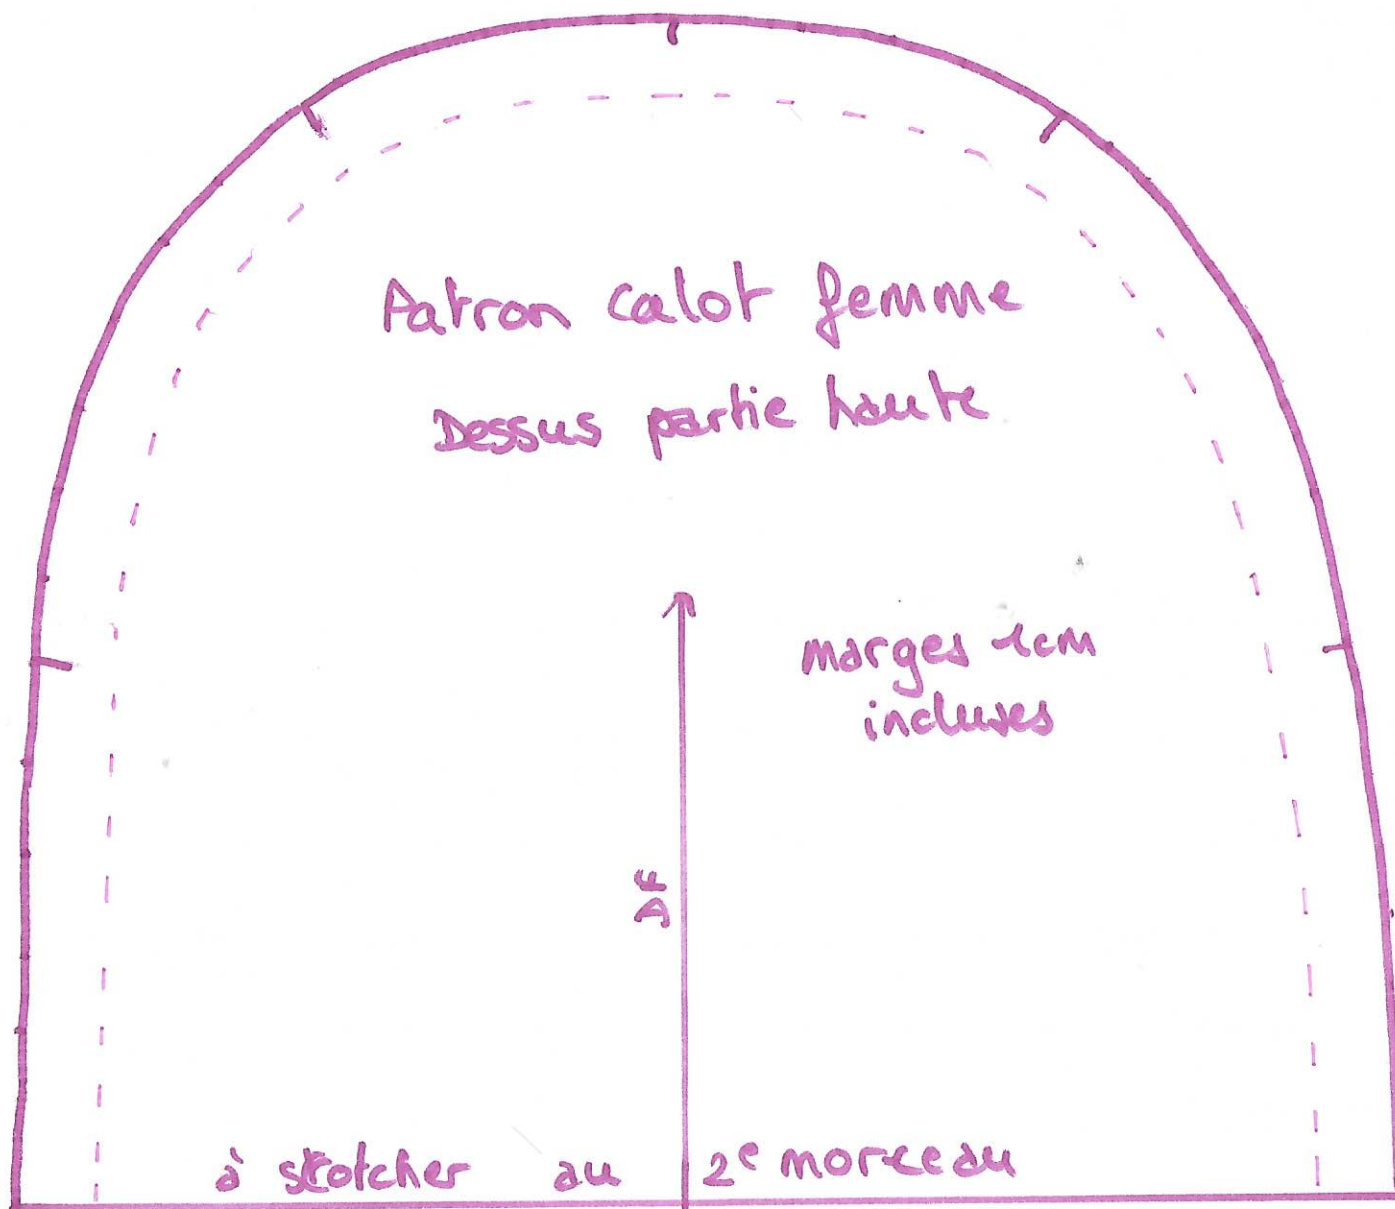 Patron calot femme
Dessus partie haute
marges 1cm
incluses
DF
à scotcher au 2e morceau